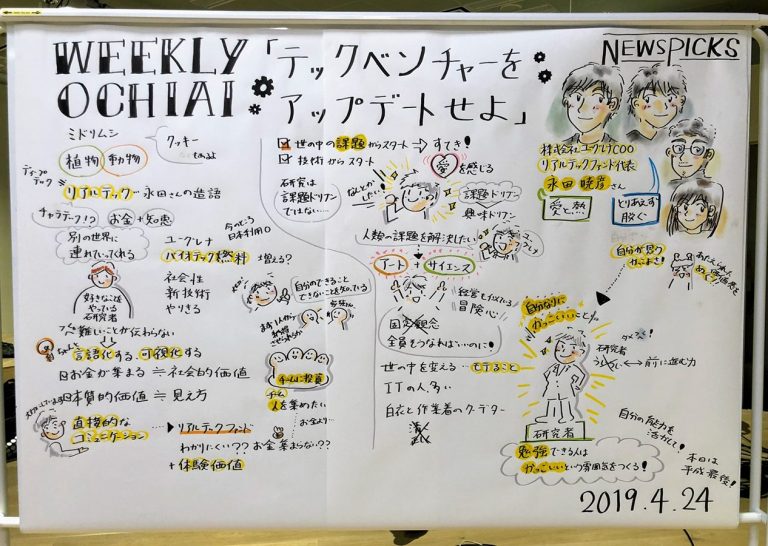 WEEKLY
OCHIAI
「テックベンチャーを
アップデートせよ」
NEWSPICKS
ミドリムシ
クッキー
もあるよ
植物 動物
ディープ
テック
リアルテック 永田さんの造語
キャラテーク!?
お金より知恵
別の世界に
連れていってくれる
好きなことを
やっている
研究者
ユーグレナ
バイオテック燃料
今のところ
日本利用0
増える?
社会性
新技術
やりきる
難しいことが伝わらない
ちゃんと
言語化する、可視化する
お金が集まる ≒ 社会的価値
本質的価値 ≒ 見え方
直接的な
コミュニケーション
リアルテックファンド
わかりにくい?? お金集まらない??
+体験価値
世の中の課題からスタート ⇒ すてき!
技術からスタート
愛を感じる
研究は
課題ドリブン
ではない…
なんとか
したい!
課題ドリブン
興味ドリブン
人類の課題を解決したい
アート + サイエンス
自分のできること
できないことを知っている
経営も似ている
冒険心
固定観念
全員をつなればいいのに!
世の中を変える…モテること
ITの人、多い
白衣と作業着のクーデター
チームに投資
チーム
人を集めたい
お金より…
株式会社ユーグレナCOO
リアルテックファンド代表
永田暁彦さん
愛と熱
とりあえず
脱ぐ
自分が思う
かっこよさ!
自分なりに
かっこいいこと
研究者
うしろい ←→ 前に進む力
研究者
勉強できる人は
かっこいいという雰囲気をつくる!
自分の能力を
活かして!
本日は
平成最後!
2019.4.24